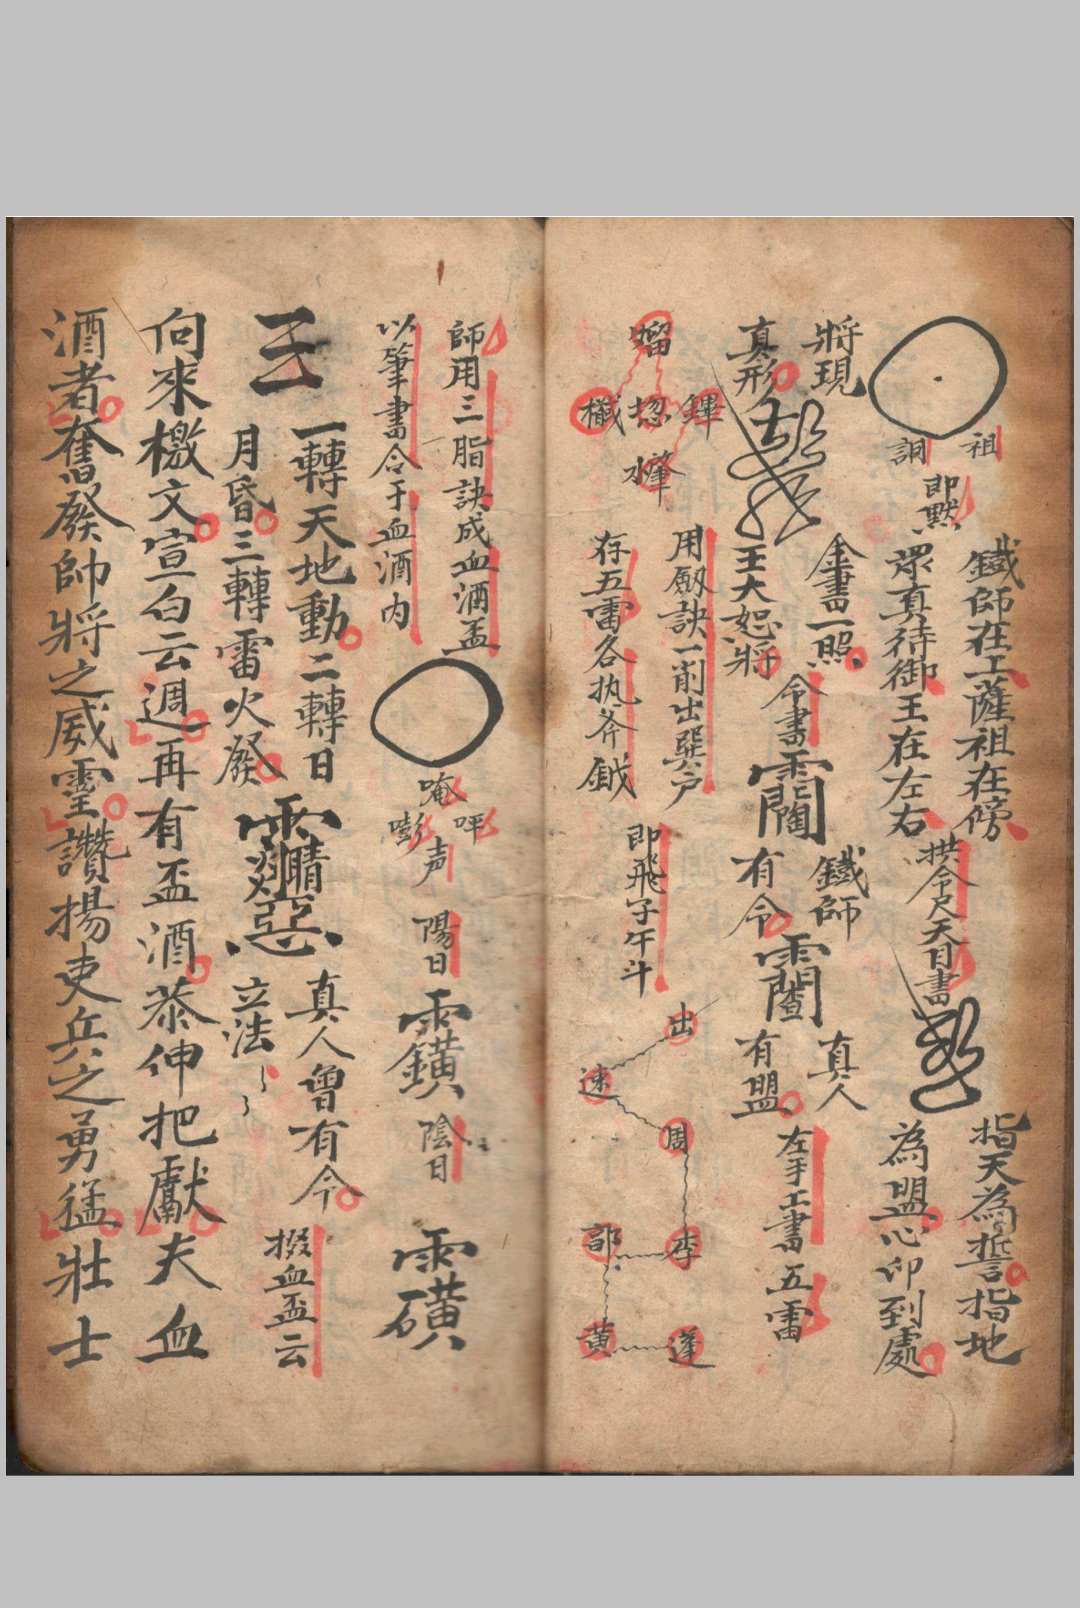 祖
訶
即默
鐵師在上薩祖在傍
眾真待御王在左右
拱令尺天目書
指天為誓指地
為盟心印到處
將現
真形
金書一照
王大恕將
令書
鐵師
有令
真人
有盟
左手工書五雷
用劔訣一削出巽户
存五雷各执斧鉞
即飛子午斗
出
速
周
李
部
黃
蓬
師用三脂訣成血酒盃
以筆書合于血酒内
唵
呯
嘭
声
陽日
陰日
三
一轉天地動二轉日
月昏三轉雷火發
真人曾有令
立法
掇血盃云
向來檄文宣白云週再有盃酒恭伸把獻夫血
酒者奮發帥將之威靈讚揚吏兵之勇猛壯士